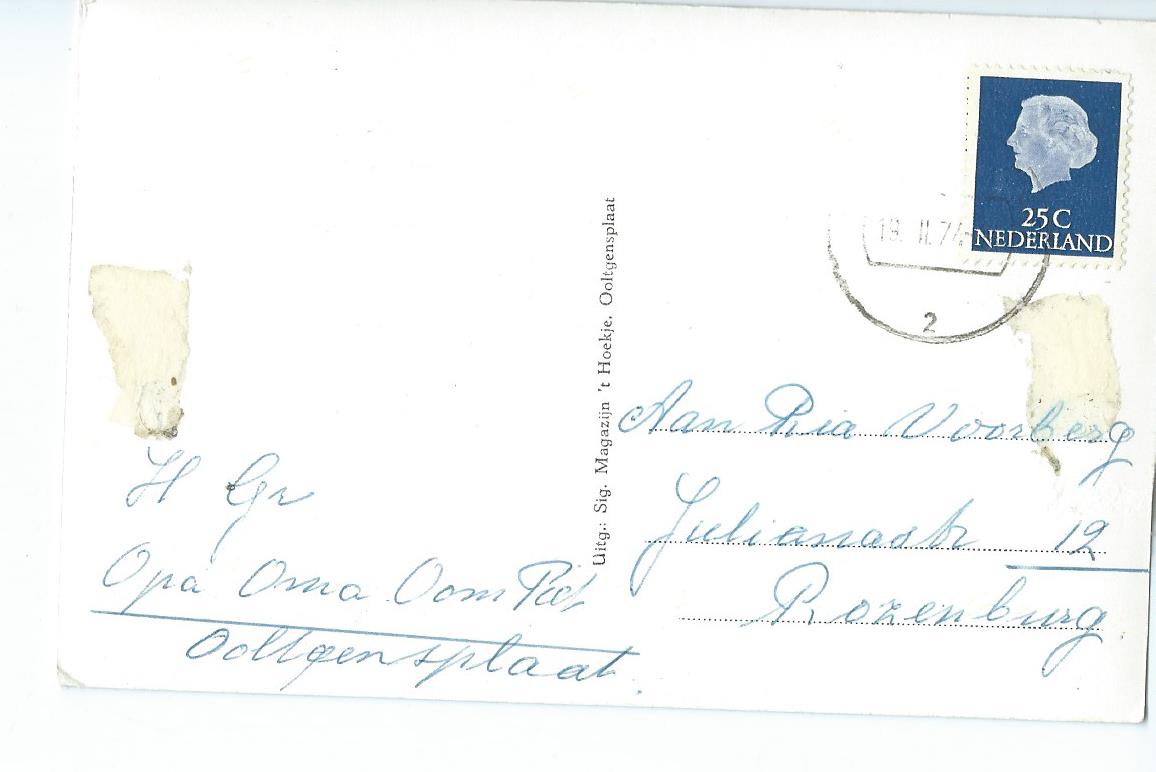 25 C
NEDERLAND
19. II. 74
2
Uitg.: Sig. Magazijn 't Hoekje, Ooltgensplaat
Aan Ria Voorberg
Julianastr 12
Rozenburg
H Gr
Opa Oma Oom Piet
Ooltgensplaat.